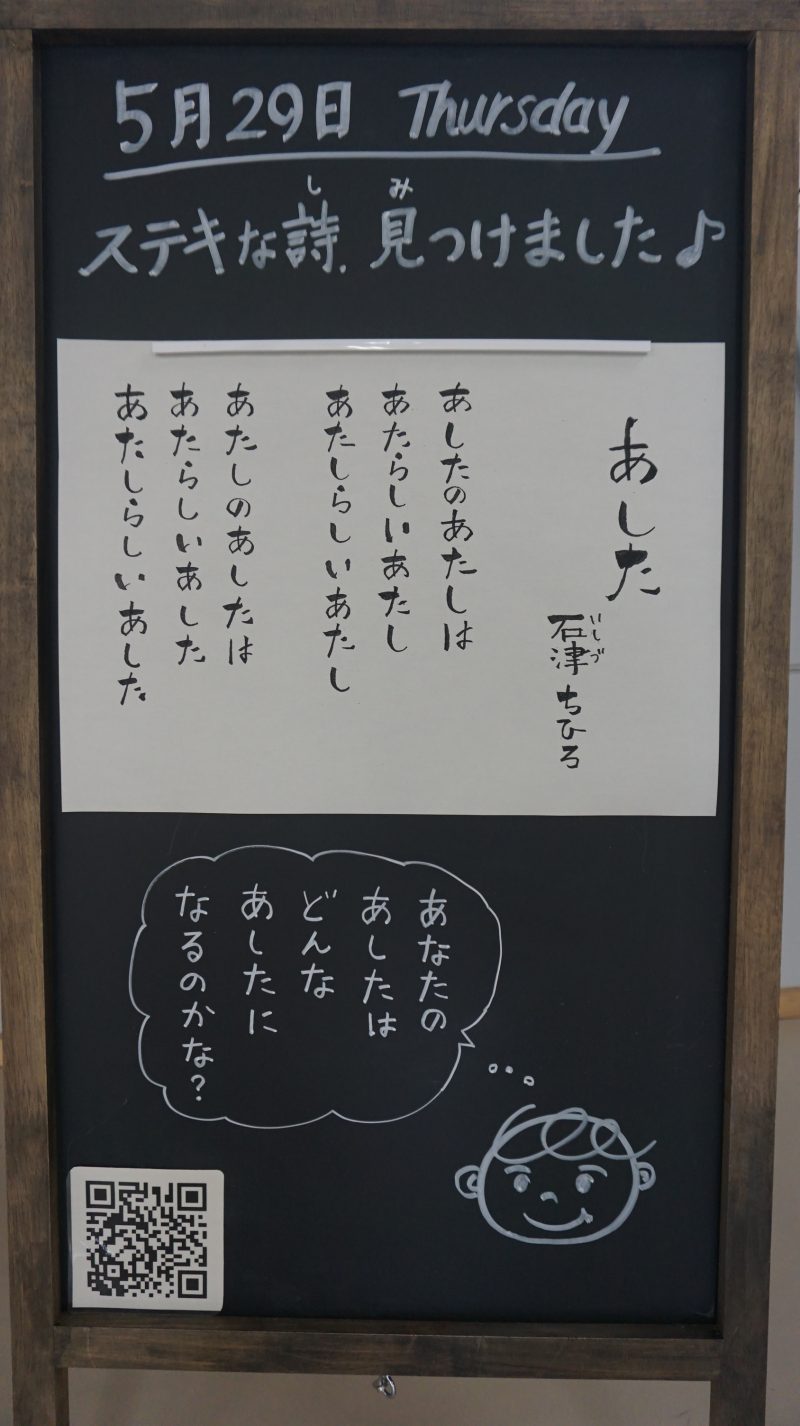 5月29日 Thursday
ステキな詩、見つけました♪
し み
あした
石津 ちひろ
いしづ
あしたのあたしは
あたらしいあたし
あたしらしいあたし
あたしのあしたは
あたらしいあした
あたしらしいあした
あなたの
あしたは
どんな
あしたに
なるのかな?